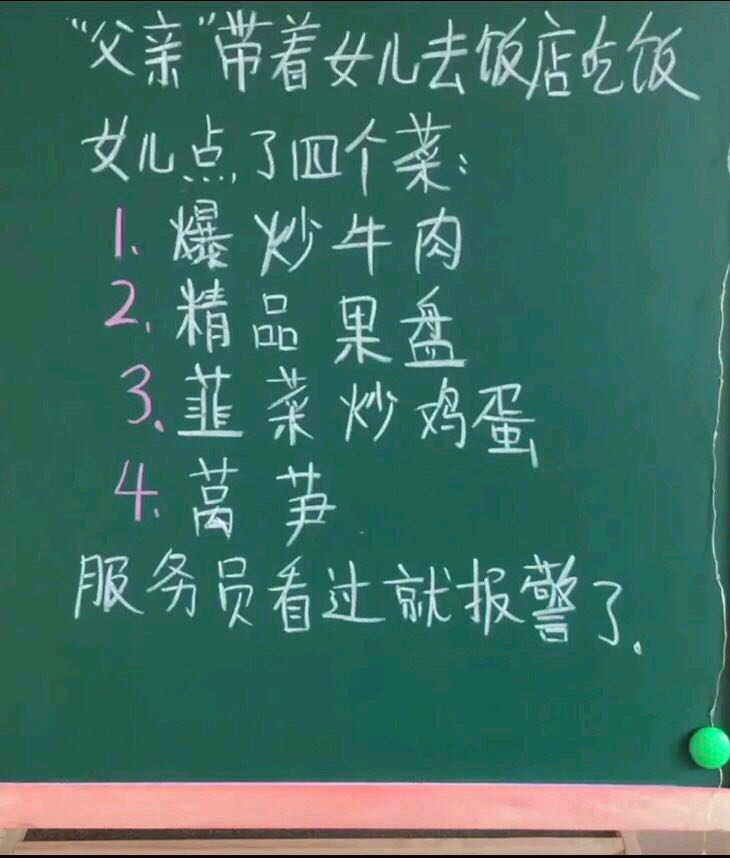 “父亲”带着女儿去饭店吃饭
女儿点了四个菜:
1. 爆炒牛肉
2. 精品果盘
3. 韭菜炒鸡蛋
4. 莴笋
服务员看过就报警了.